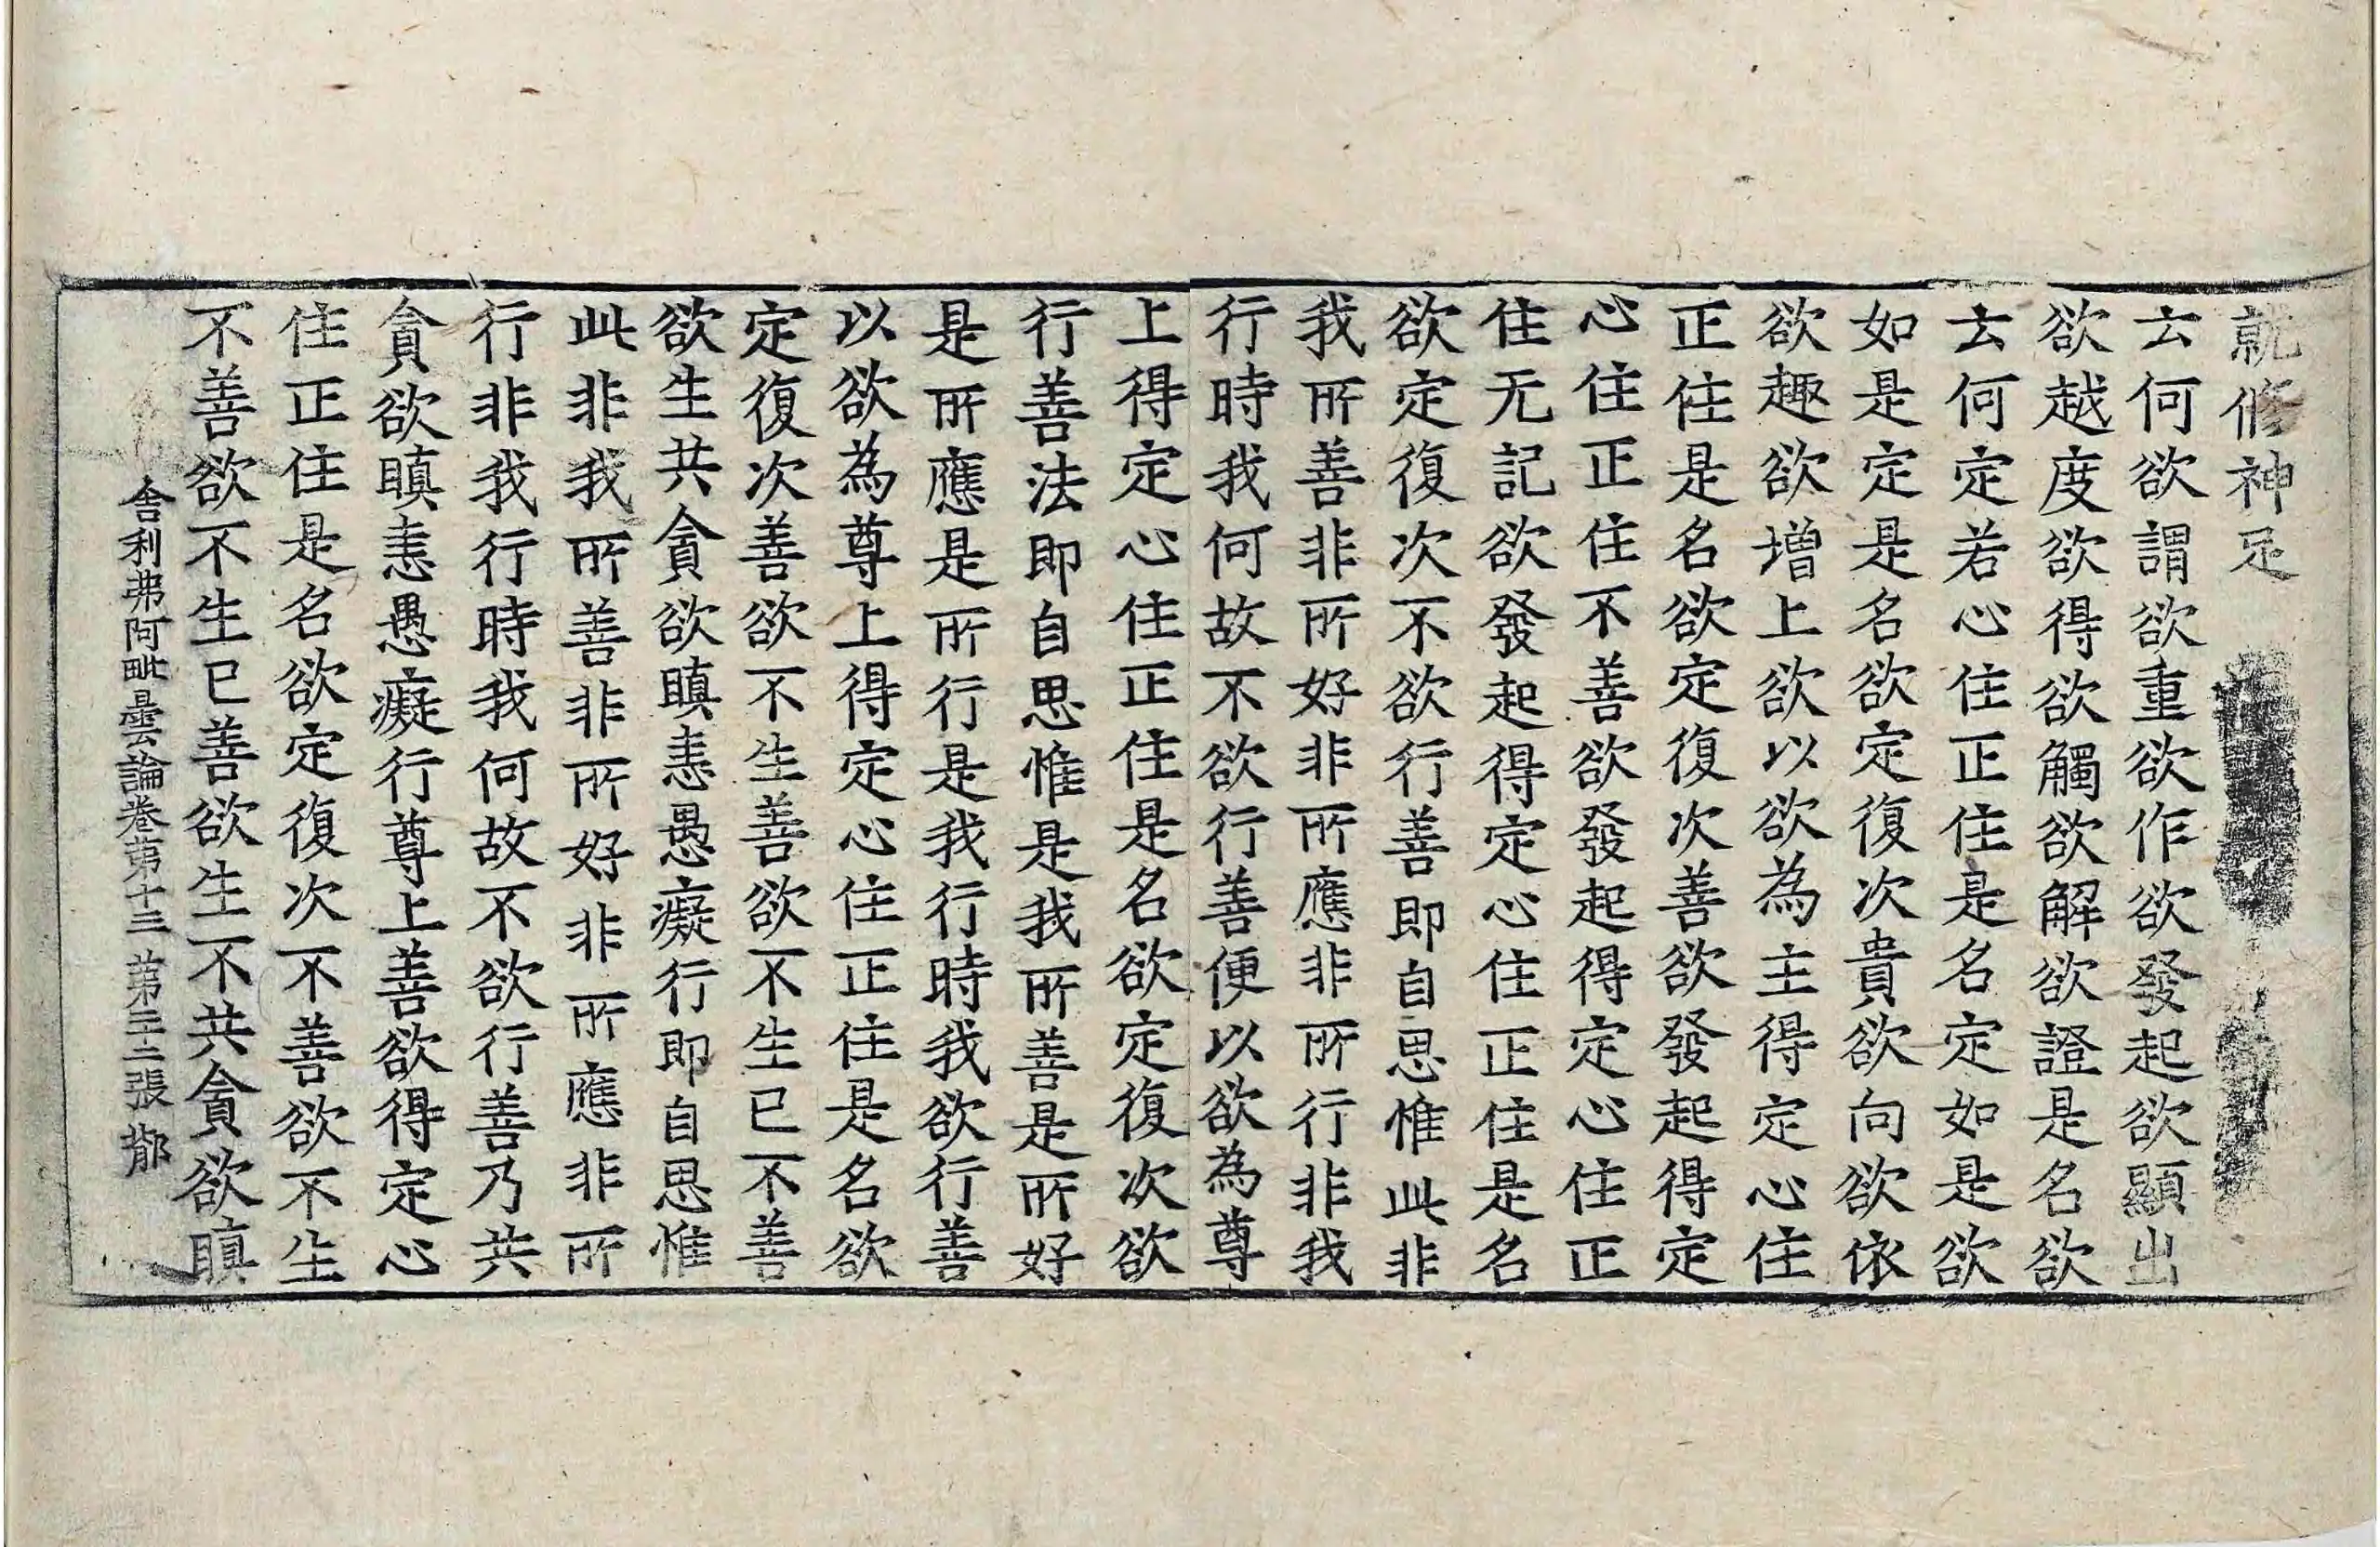 就修神足
云何欲謂欲重欲作欲發起欲顯出
欲越度欲得欲觸欲解欲證是名欲
云何定若心住正住是名定如是欲
如是定是名欲定復次貴欲向欲依
欲趣欲增上欲以欲為主得定心住
正住是名欲定復次善欲發起得定
心住正住不善欲發起得定心住正
住无記欲發起得定心住正住是名
欲定復次不欲行善即自思惟此非
我所善非所好非所應非所行非我
行時我何故不欲行善便以欲為尊
上得定心住正住是名欲定復次欲
行善法即自思惟是我所善是所好
是所應是所行是我行時我欲行善
以欲為尊上得定心住正住是名欲
定復次善欲不生善欲不生已不善
欲生共貪欲瞋恚愚癡行即自思惟
此非我所善非所好非所應非所
行非我行時我何故不欲行善乃共
貪欲瞋恚愚癡行尊上善欲得定心
住正住是名欲定復次不善欲不生
不善欲不生已善欲生不共貪欲瞋
舍利弗阿毗曇論卷第十三 第三二張 鄁